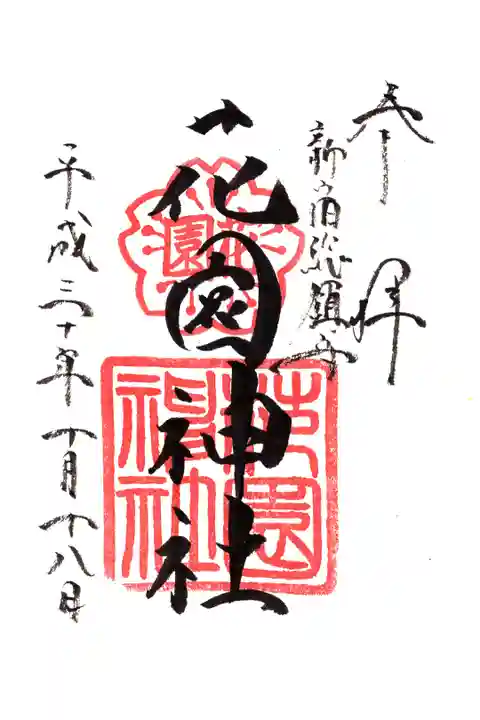 奉拝
新宿総鎮守
花園神社
平成三十年十月十八日
花園
花園神社